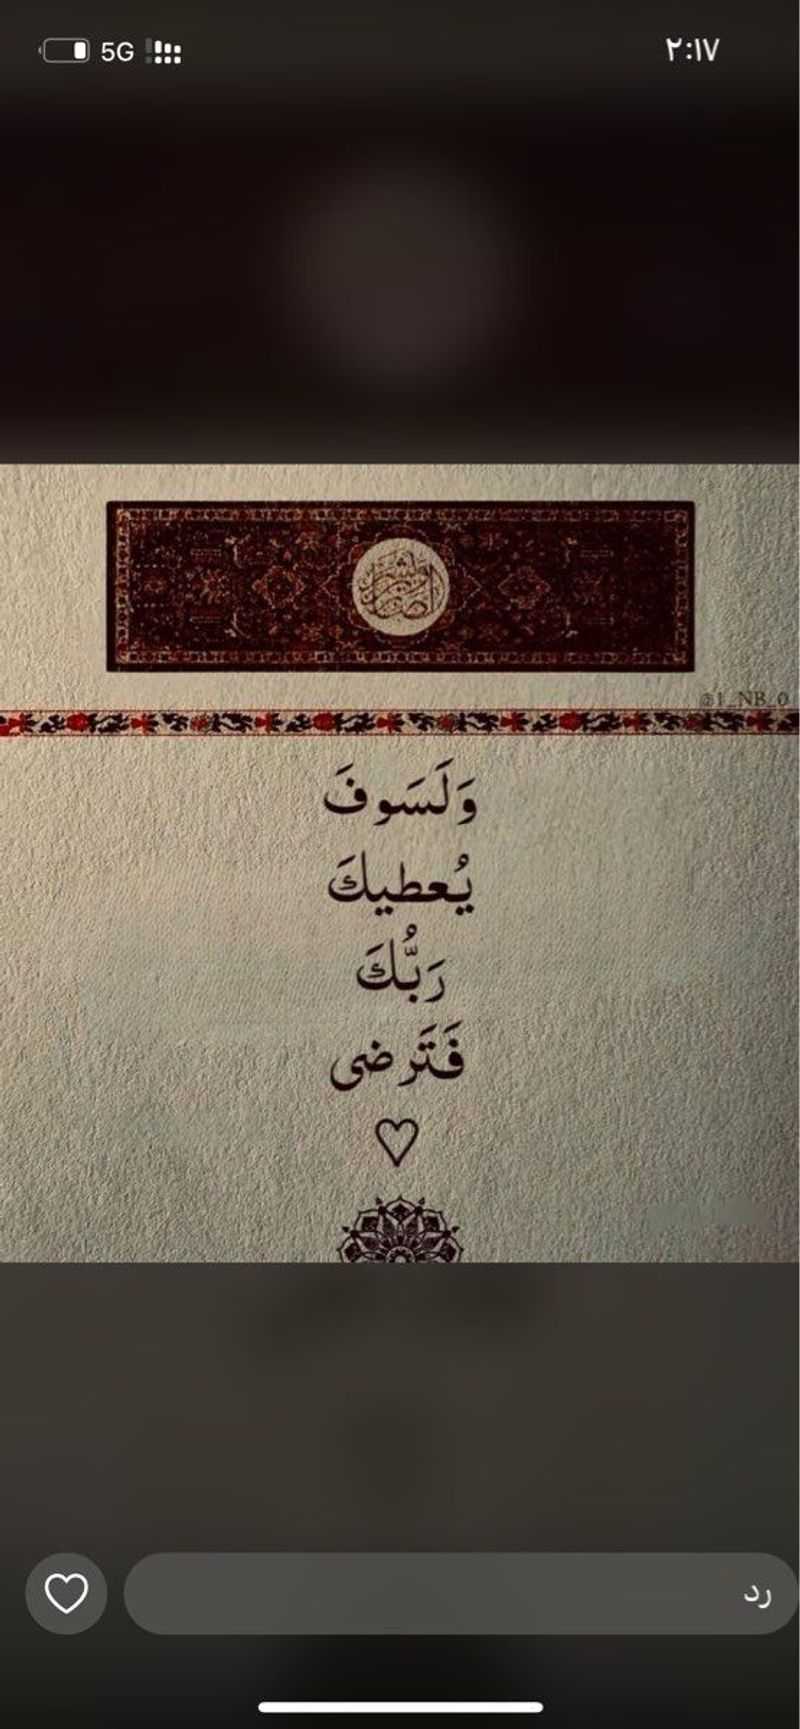 5G
٢:١٧
@1_NB_0
وَلَسَوفَ
يُعطيكَ
رَبُّكَ
فَتَرضى
♡
رد